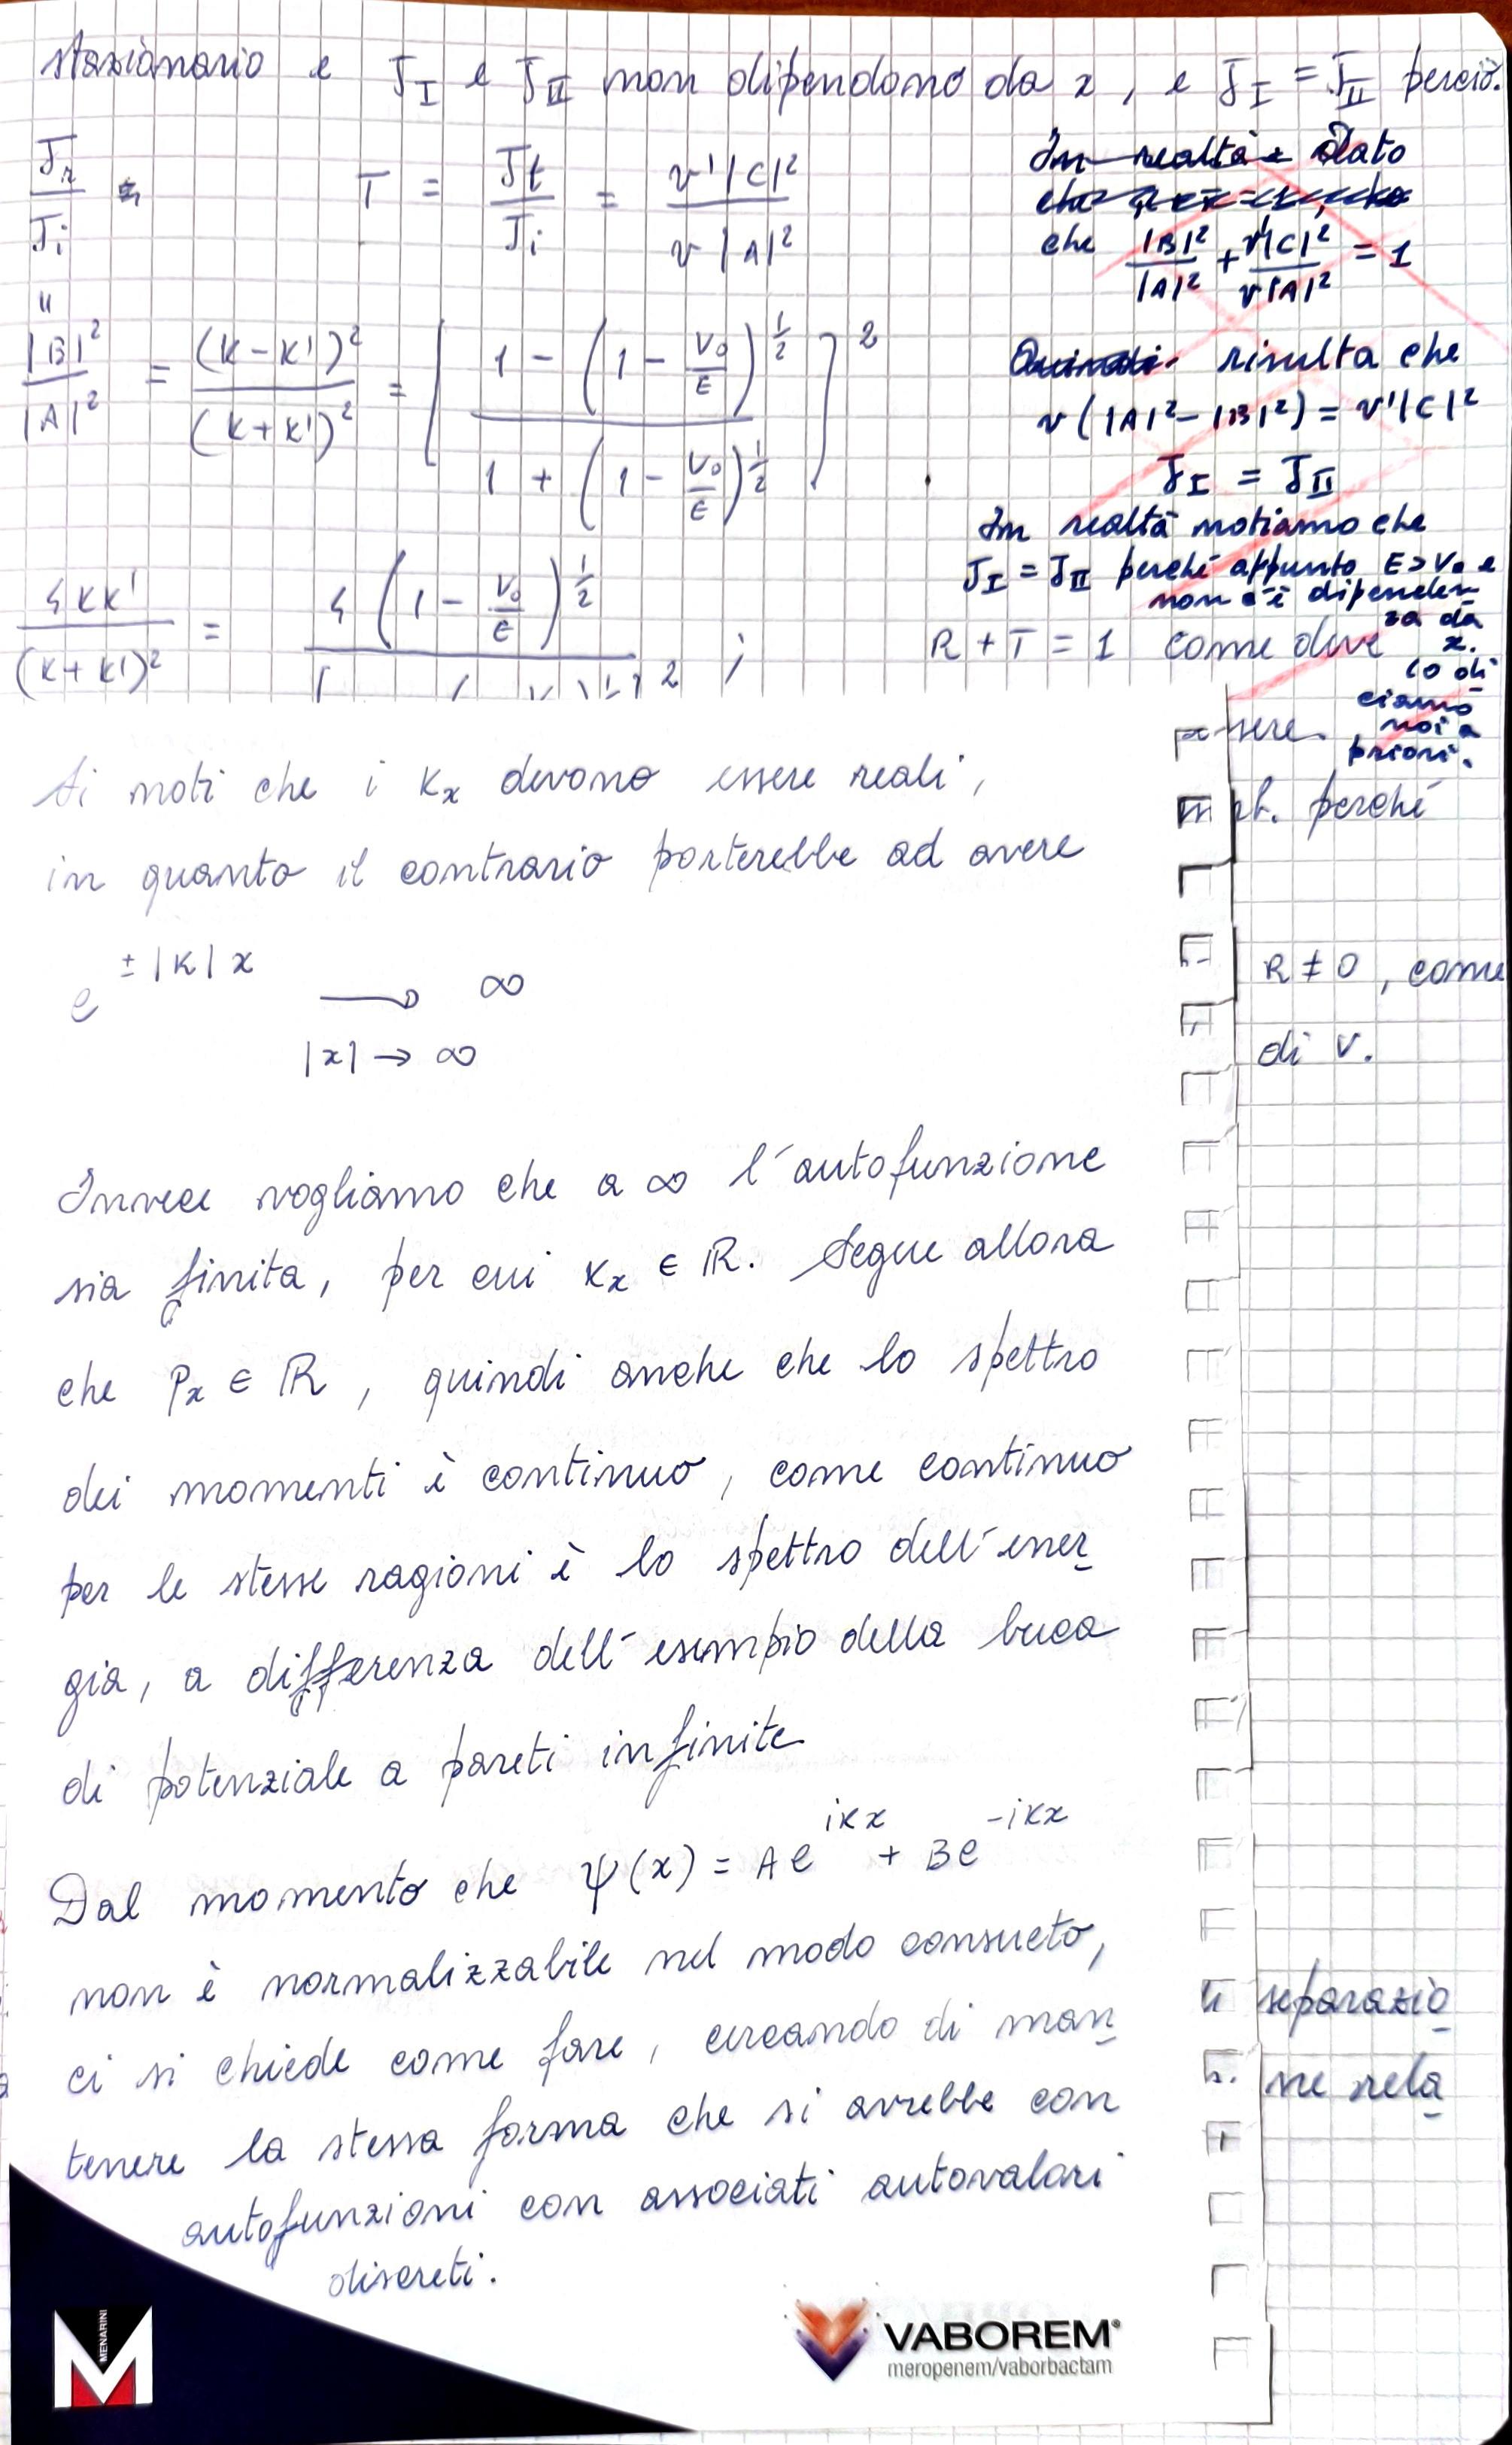 stazionario e J_I e J_II non dipendono da x, e J_I = J_II perciò.
J_r / J_i = T = J_t / J_i = v'|C|² / v|A|²
In realtà Dato
che
che |B|²/|A|² + v'|C|²/v|A|² = 1
"
|B|²/|A|² = (K-K')²/(K+K')² = [ (1 - (1 - V₀/E)^{1/2}) / (1 + (1 - V₀/E)^{1/2}) ]²
Quindi risulta che
v(|A|² - |B|²) = v'|C|²
J_I = J_II
In realtà notiamo che
J_I = J_II perché appunto E>V₀ e
non c'è dipenden
za da
x.
lo di
ciamo
noi a
priori.
4KK'/(K+K')² = 4(1 - V₀/E)^{1/2} / [ ]² ; R + T = 1 come deve
essere.
perché
R ≠ 0, come
di V.
separazio
ne rela
Si noti che i Kx devono essere reali,
in quanto il contrario porterebbe ad avere
e^{±|K|x} → ∞
|x| → ∞
Invece vogliamo che a ∞ l'autofunzione
sia finita, per cui Kx ∈ ℝ. Segue allora
che Px ∈ ℝ, quindi anche che lo spettro
dei momenti è continuo, come continuo
per le stesse ragioni è lo spettro dell'ener
gia, a differenza dell'esempio della buca
di potenziale a pareti infinite
Dal momento che ψ(x) = Ae^{iKx} + Be^{-iKx}
non è normalizzabile nel modo consueto,
ci si chiede come fare, cercando di man
tenere la stessa forma che si avrebbe con
autofunzioni con associati autovalori
discreti.
MENARINI
VABOREM®
meropenem/vaborbactam